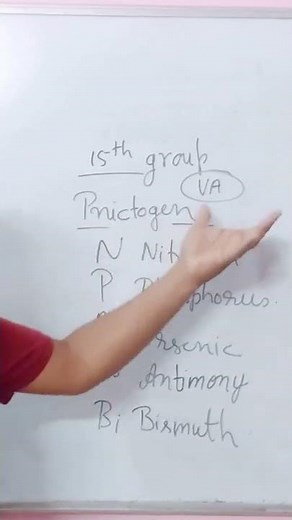 15th group
VA
Pnictogen
N Nit
P phorus.
rsenic
Antimony
Bi Bismuth